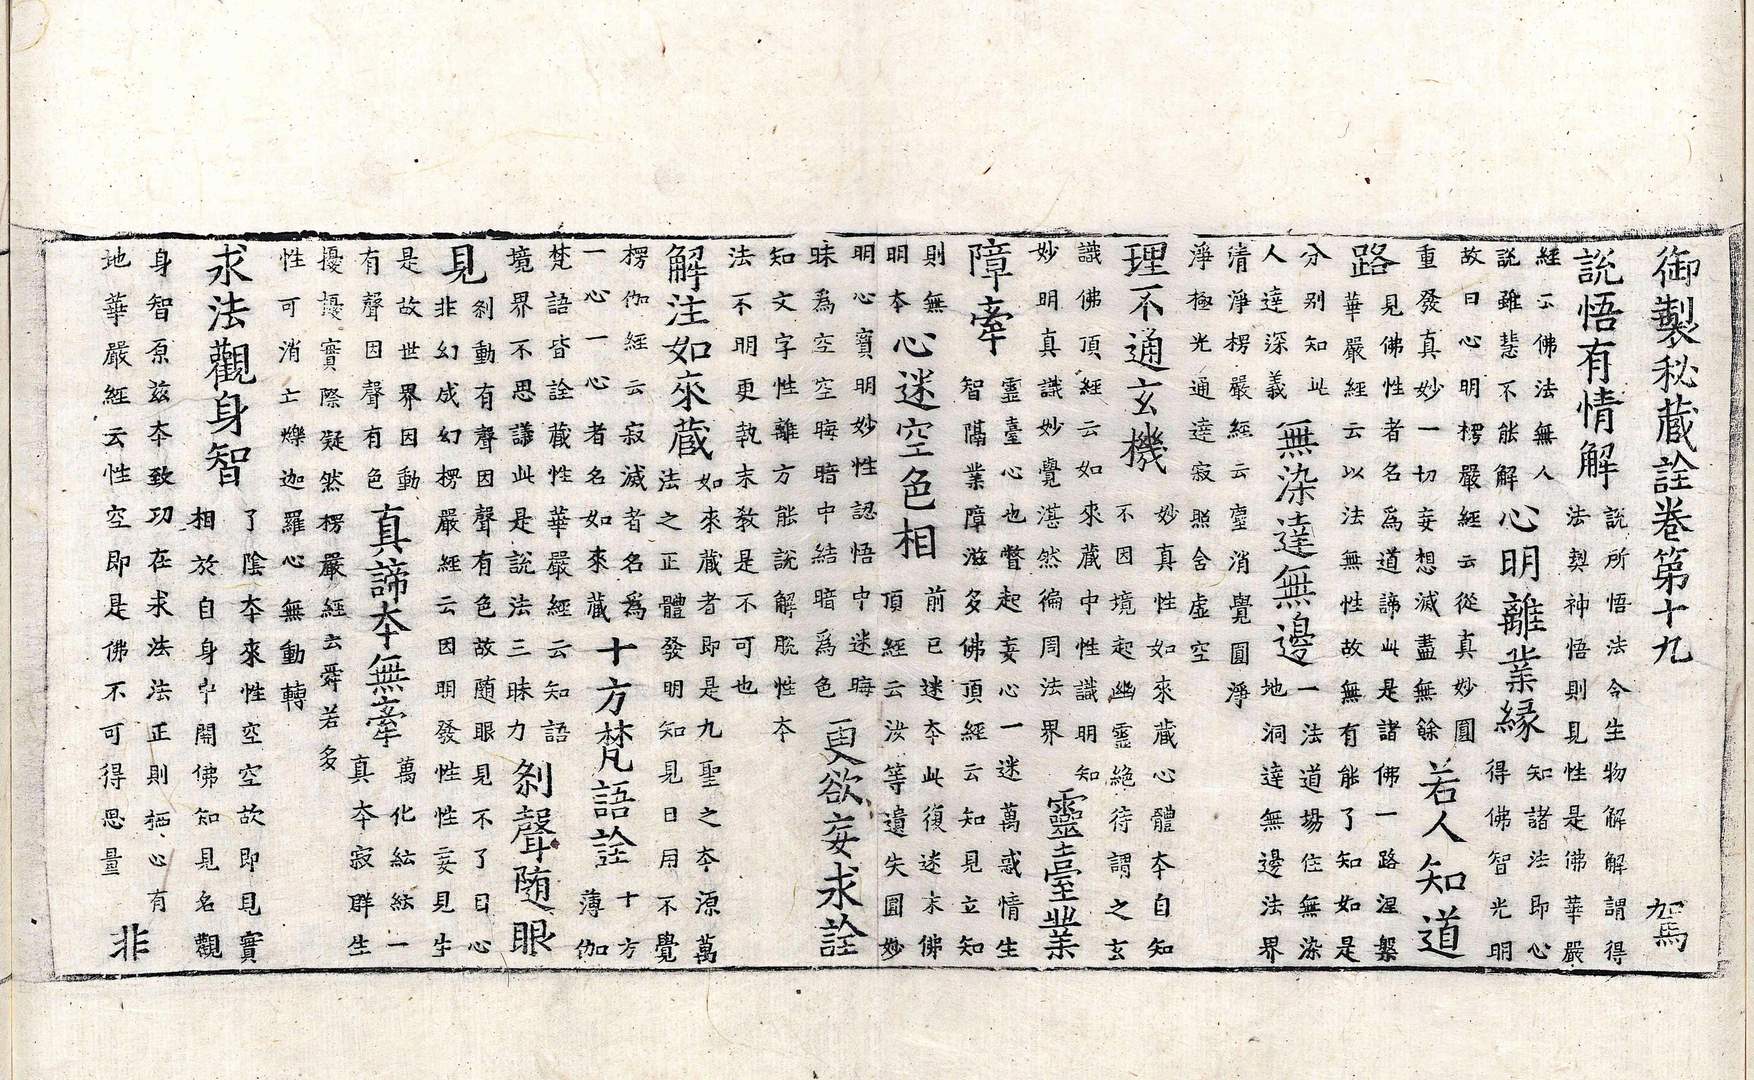 御製秘藏詮卷第十九 駕
說悟有情解
說所悟法令生物解解謂得
法契神悟則見性是佛華嚴
經云佛法無人
說雖慧不能解
心明離業緣
知諸法即心
得佛智光明
故曰心明楞嚴經云從真妙圓
重發真妙一切妄想滅盡無餘
若人知道
路
見佛性者名為道諦此是諸佛一路涅槃
華嚴經云以法無性故無有能了知如是
分別知此
人達深義
無染達無邊
一法道場住無染
地洞達無邊法界
清淨楞嚴經云塵消覺圓淨
淨極光通達寂照含虛空
理不通玄機
妙真性如來藏心體本自知
不因境起幽靈絕待謂之玄
識佛頂經云如來藏中性識明知
妙明真識妙覺湛然徧周法界
靈臺業
障牽
靈臺心也瞥起妄心一迷萬惑情生
智隔業障滋多佛頂經云知見立知
則無
明本
心迷空色相
前已迷本此復迷末佛
頂經云汝等遺失圓妙
明心寶明妙性認悟中迷晦
昧為空晦暗中結暗為色
更欲妄求詮
知文字性離方能說解脫性本
法不明更執末教是不可也
解注如來藏
如來藏者即是九聖之本源萬
法之正體發明知見日用不覺
楞伽經云寂滅者名為
一心一心者名如來藏
十方梵語詮
十方
薄伽
梵語皆詮藏性華嚴經云知語
境界不思議此是說法三昧力
剎聲隨眼
見
剎動有聲因聲有色故隨眼見不了曰心
非幻成幻楞嚴經云因明發性性妄見生
是故世界因動
有聲因聲有色
真諦本無牽
萬化紜紜一
真本寂群生
擾擾實際凝然楞嚴經云舜若多
性可消亡爍迦羅心無動轉
求法觀身智
了陰本來性空空故即見實
相於自身中開佛知見名觀
身智原茲本致功在求法法正則栖心有
地華嚴經云性空即是佛不可得思量
非